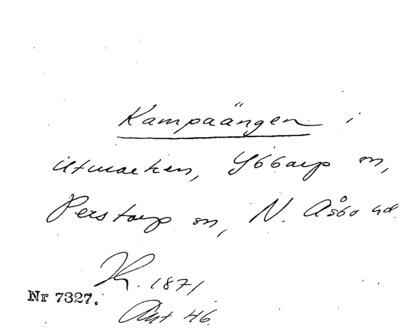 Kampaängen i
utmarken, Ybbarp sn,
Perstorp sn, N. Åsbo hd
K. 1871
Nr 7327.
Akt 46